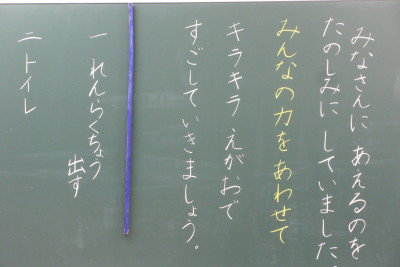 みなさんに あえるのを
たのしみに していました。
みんなの力を あわせて
キラキラ えがおで
すごして いきましょう。
一 れんらくちょう
出す
二 トイレ